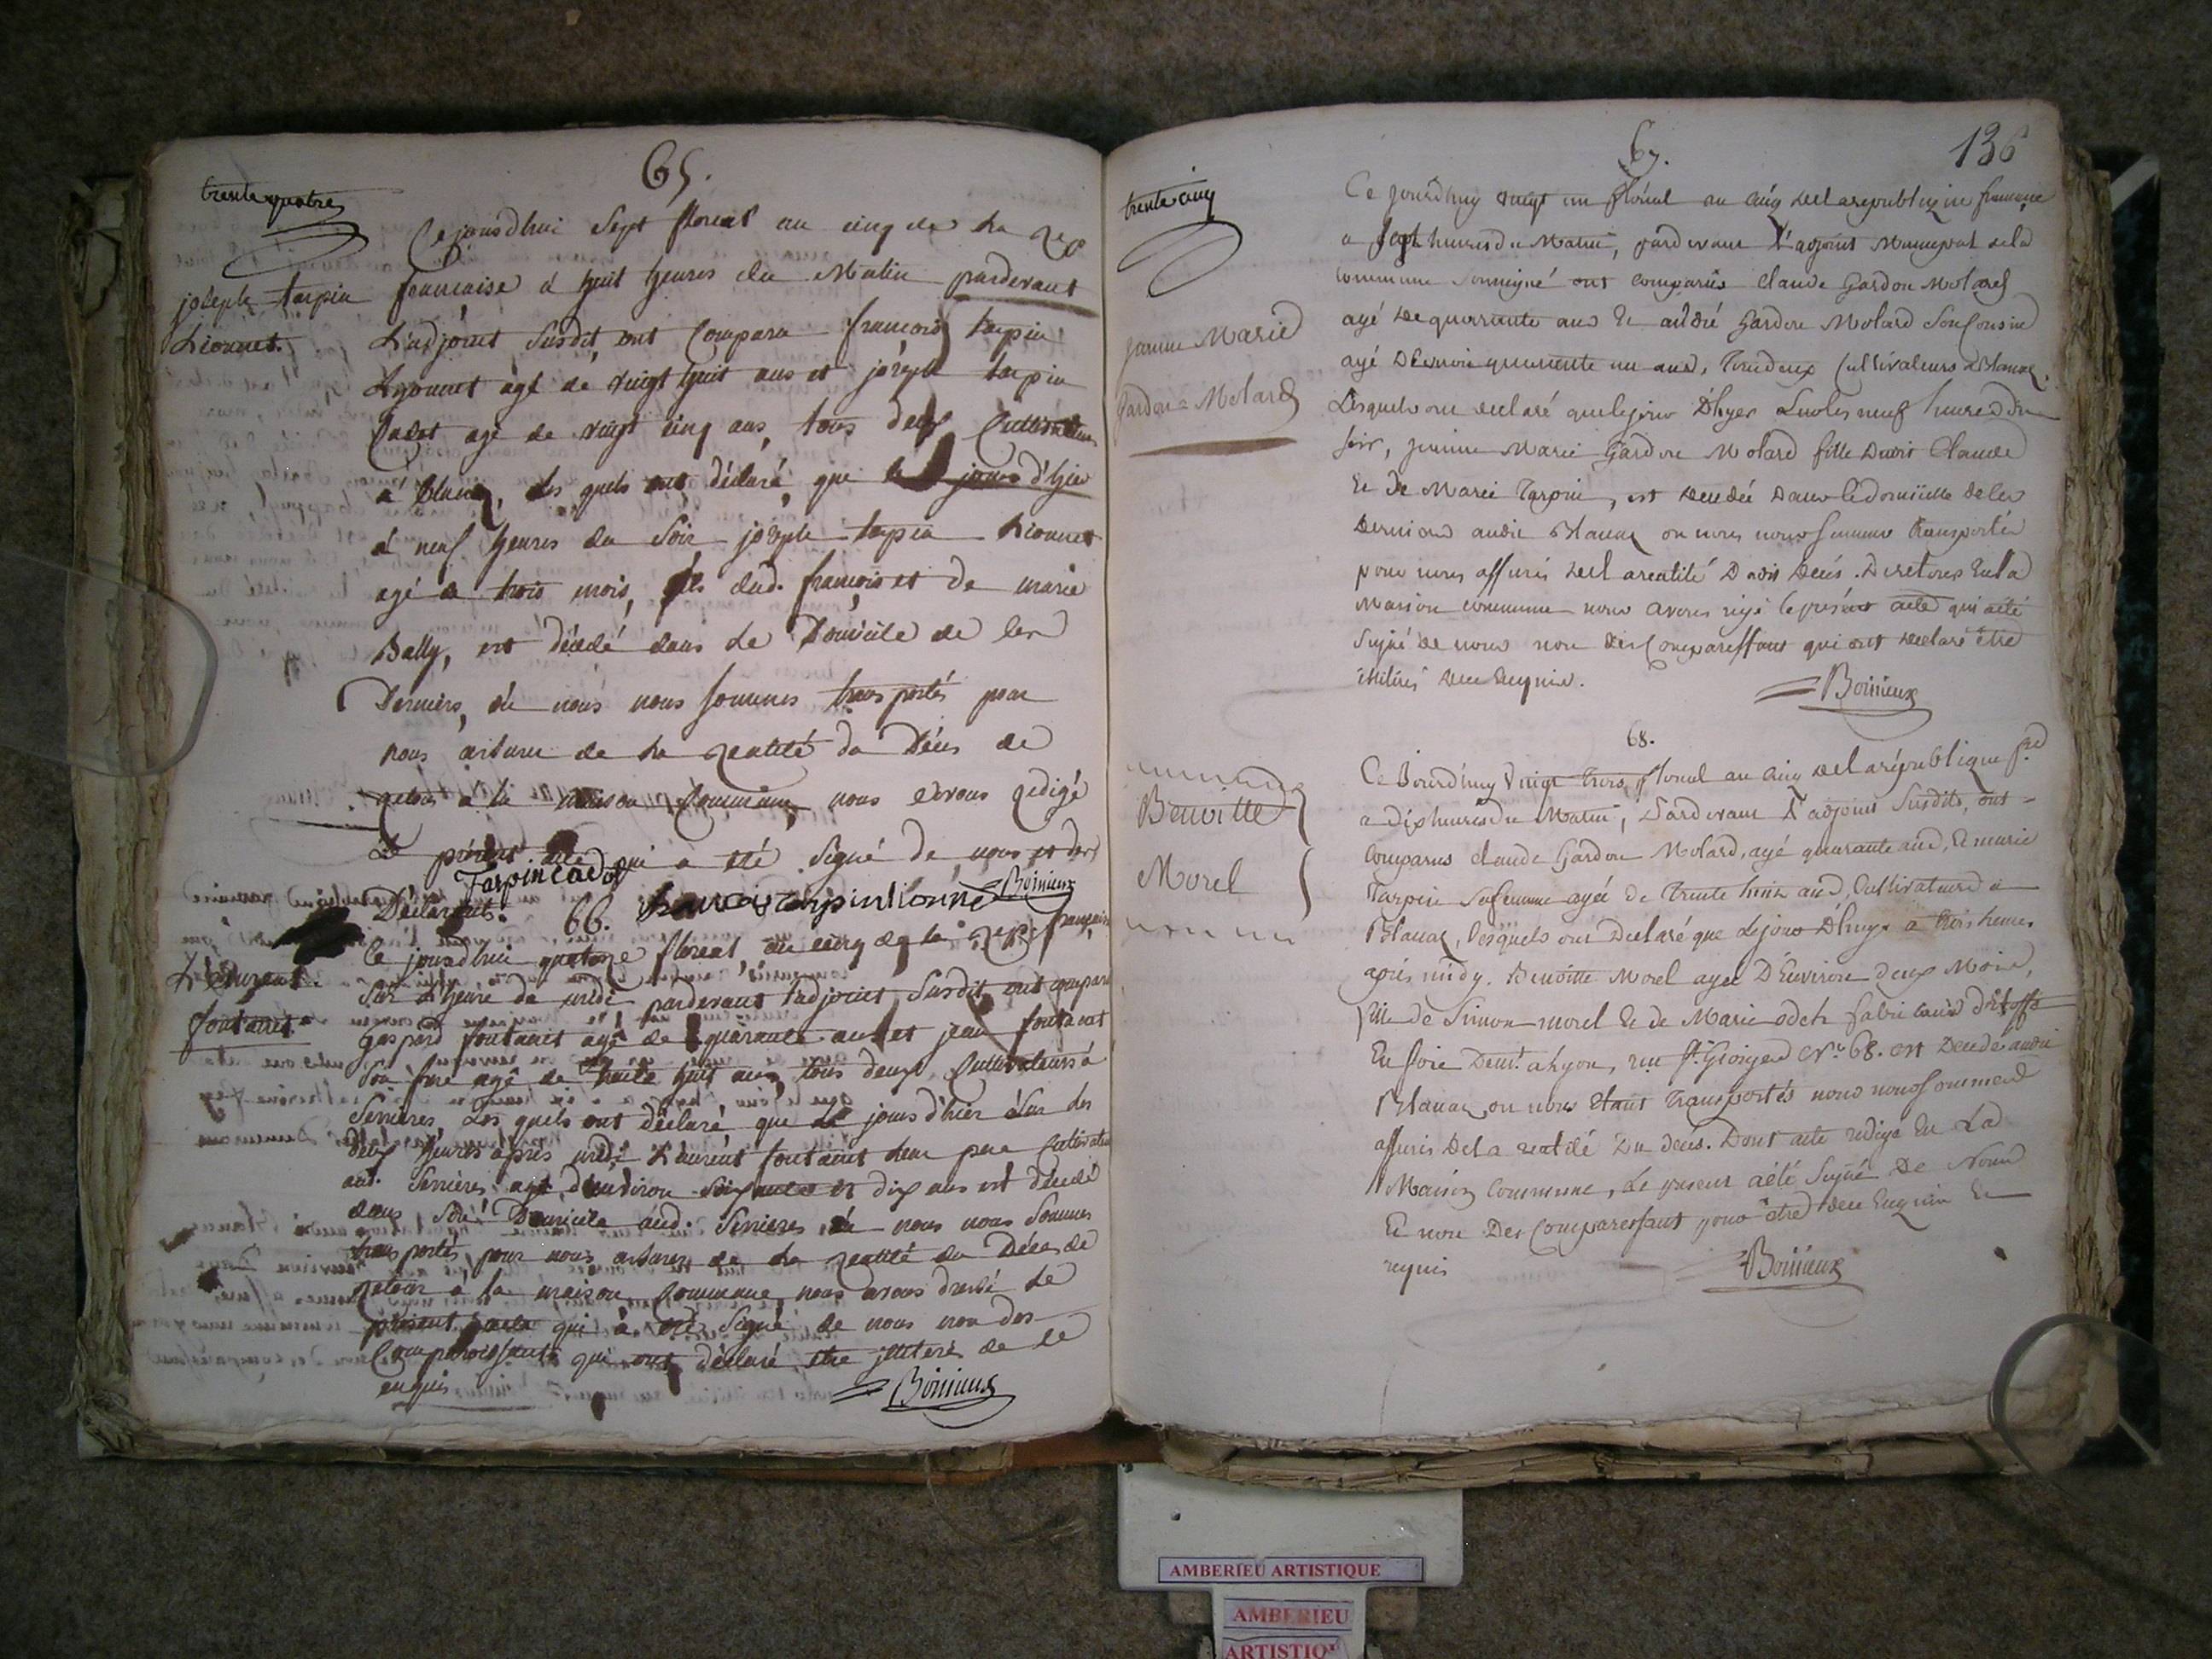 65.
trente quatre
joseph tarpin
Lionnet.
Cejourdhui sept floreal an cinq de la rep
francaise à huit heures du Matin pardevant
L'adjoint susdit, ont Comparu françois tarpin
Lyonnet agé de vingt huit ans et joseph tarpin
Cadet agé de vingt cinq ans, tous deux Cultivateurs
à blanaz, les quels ont déclaré, que le jours d'hier
à neuf heures du Soir joseph tarpin Lionnet
agé de trois mois, fils dud. françois et de marie
Bally, est décédé dans le Domicile de les
Derniers, où nous nous sommes transportés pour
nous assurer de la réalité du Décés de
retour à la Maison Commune, nous avons redigé
Le présent acte qui a été Signé de nous et des
Déclarants. Tarpin Cadet francois tarpin lionne Boinieux
66.
Laurent
fontanet
Ce jourd'hui quatorze floreal, an cinq de la rep. française
Sur L'heure de midi pardevant Ladjoint Susdit, ont comparu
Gaspard fontanet agé de quarante ans et jean fontanet
Son frere agé de trente huit ans, tous deux Cultivateurs à
Serrieres, Les quels ont déclaré que Le jours d'hier à Sur les
deux heures après midi Laurent fontanet leur pere Cultivateur
aud. Serrières agé d'environ soixante et dix ans est décédé
dans Son Domicile aud. Serrieres, où nous nous Sommes
transportés pour nous assurer de la réalité du Décés de
retour à la maison Commune, nous avons dressé le
présent acte qui à été Signé de nous non des
Comparoissants qui ont déclaré être illiterés de ce
enquis
Boinieux
136
67.
trente cinq
Jeanne Marie
Gardon=Molard
Ce jourdhuy vingt un floréal an cinq de la republique francaise
a sept heures du Matin, pardevant L'adjoint Municipal de la
Commune soussigné ont comparus Claude Gardon Molard
agé de quarante ans et andré Gardon Molard son Cousin
agé Denviron quarante un ans, Tous deux Cultivateurs a Blanaz,
Lesquels ont declaré que le jour D'hyer Sur les neuf heures du
soir, jeanne Marie Gardon Molard fille Dudit Claude
Et De Marie Tarpin, est decedée dans le domicille de les
Derniers audit Blanaz ou nous nous sommes transportés
pour nous assurés de la realité Dudit Decés. De retour En la
Maison commune nous avons rigé le présent acte qui a été
Signé de nous non des Comparessants qui ont declaré être
illitérés dece Enquis.
Boinieux
68.
Benoitte
Morel
Ce Jourd'huy Vingt Trois floreal an Cinq de la république fse
a Dix heures du Matin, Pardevant L'adjoint Susdits, ont
Comparus Claude Gardon Molard, agé quarante ans, Et marie
Tarpin Sa femme agée de Trente huit ans, Cultivateurs a
Blanaz, lesquels ont Declaré que le jour D'huyr a trois heures
aprés midy. Benoitte Morel agée D'Environ deux Mois,
fille de Simon morel Et de Marie odet fabricants D'étoffe
En soie Demt. a Lyon, rue St. Georges No. 68. est Decedée audit
Blanaz ou nous Etant Transportés nous nous sommes
assurés De la realité Du deces. Dont acte redigé En La
Maison Commune, Le present a été Signé De Nous
Et non Des Comparessant pour être dece Enquis Et
requis
Boinieux
AMBERIEU ARTISTIQUE
AMBERIEU
ARTISTIQ